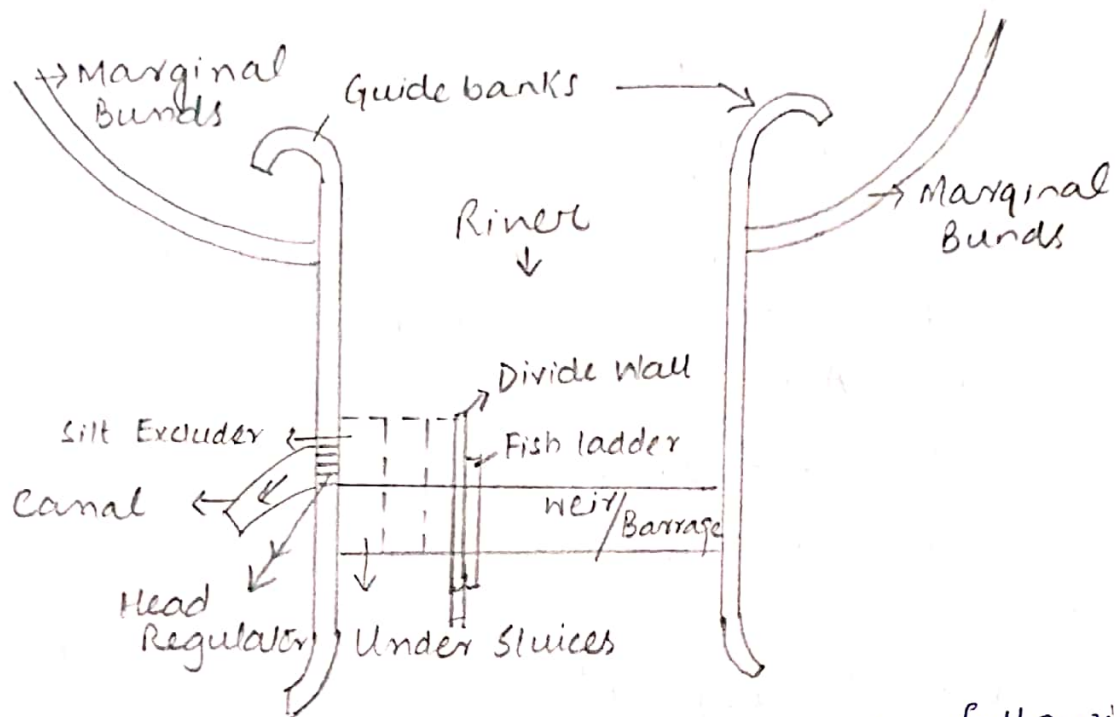 Marginal
Bunds
Guide banks
Marginal
Bunds
River
Divide Wall
Silt Excluder
Fish ladder
Canal
Weir/Barrage
Head
Regulator
Under Sluices